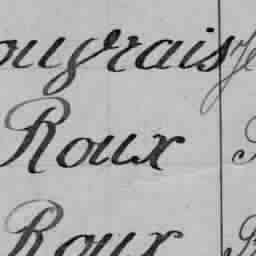 ougrais
Roux
Roux